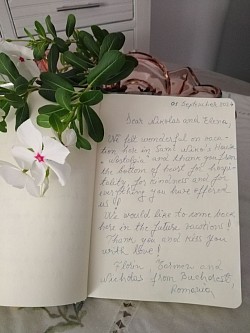 01 September 202
Dear Nicolas and Elena,
We felt wonderful on vaca-
tion here in Sami
and thank you from
the bottom of heart for hospi-
tality, for kindness and for
everything you have offered
us!
We would like to come back
here in the future vacations!
Thank you and kiss you
with love!
Florin, Carmen and
Nicholas from Bucharest
Romania